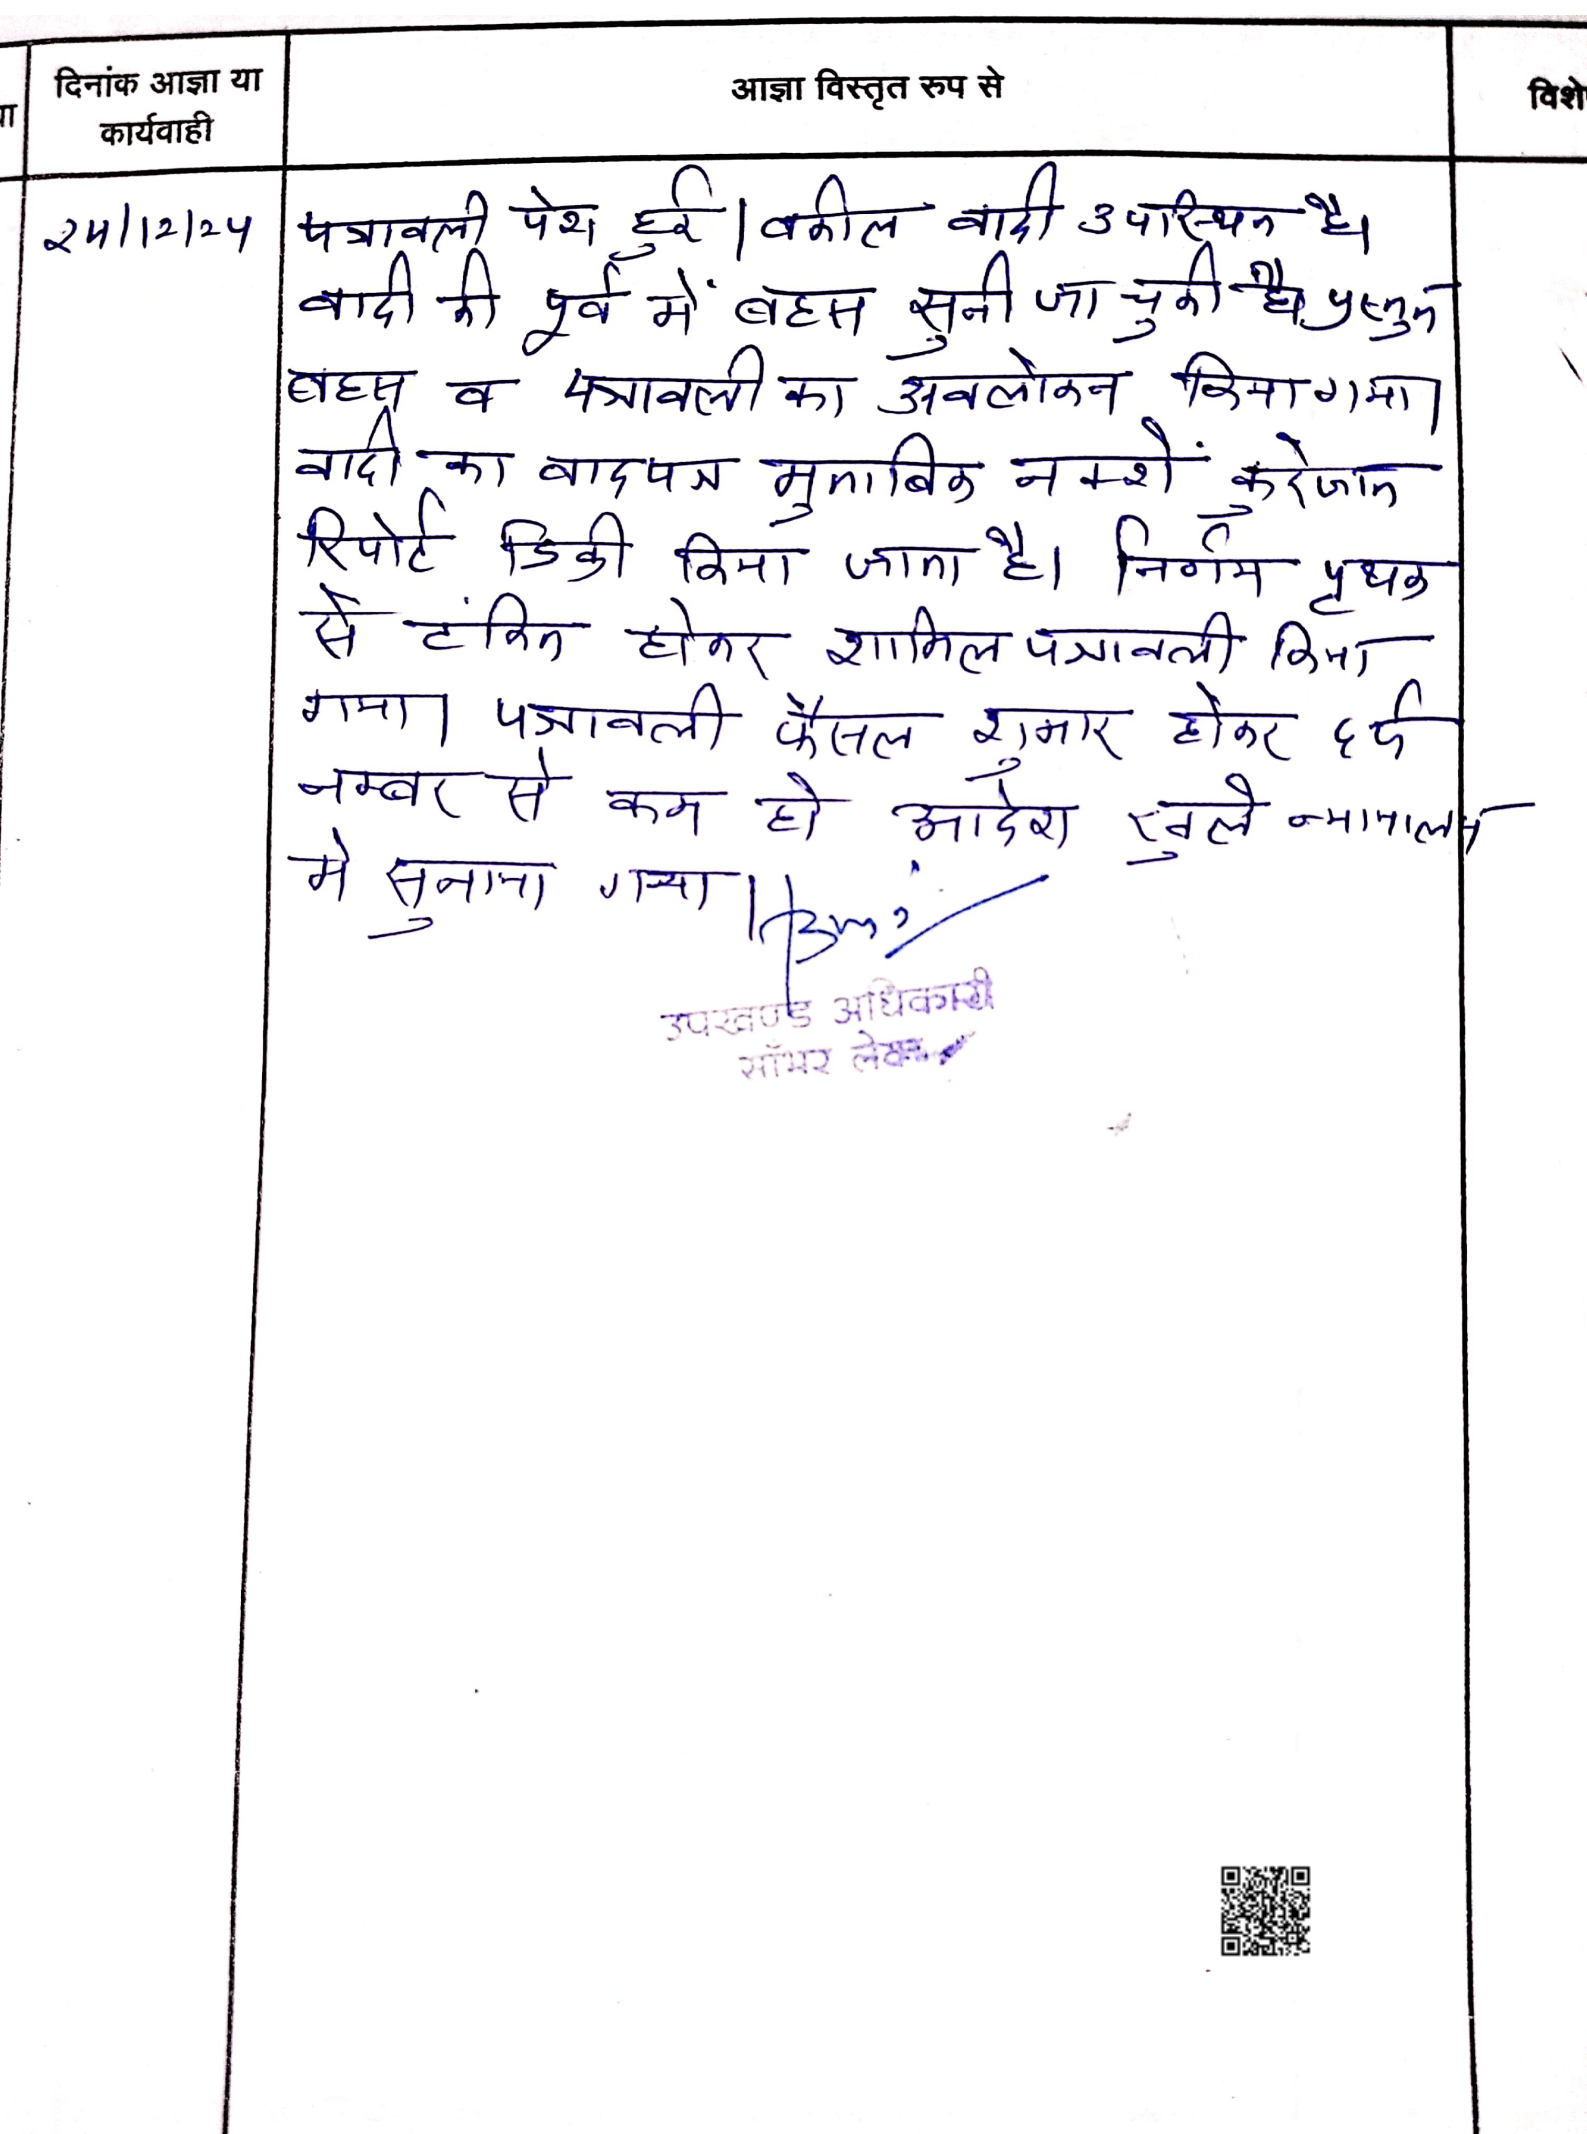 दिनांक आज्ञा या
कार्यवाही
आज्ञा विस्तृत रुप से
विशे
पत्रावली पेश हुई। वकील वादी उपस्थित है।
वादी की पूर्व में बहस सुनी जा चुकी है। प्रस्तुत
बहस व पत्रावली का अवलोकन किया गया।
वादी का वादपत्र मुताबिक नक्शें कुरेजात
रिपोर्ट डिक्री किया जाता है। निर्णय पृथक
से टंकित होकर शामिल पत्रावली किया
गया। पत्रावली फैसल शुमार होकर दर्ज
नम्बर से कम हो आदेश खुले न्यायालय
मे सुनाया गया।
उपखण्ड अधिकारी
साँभर लेक